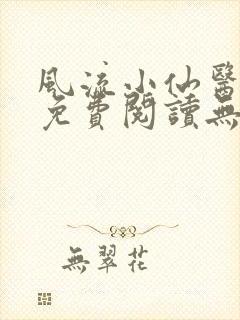 風流小仙醫
免費閱讀無
無翠花